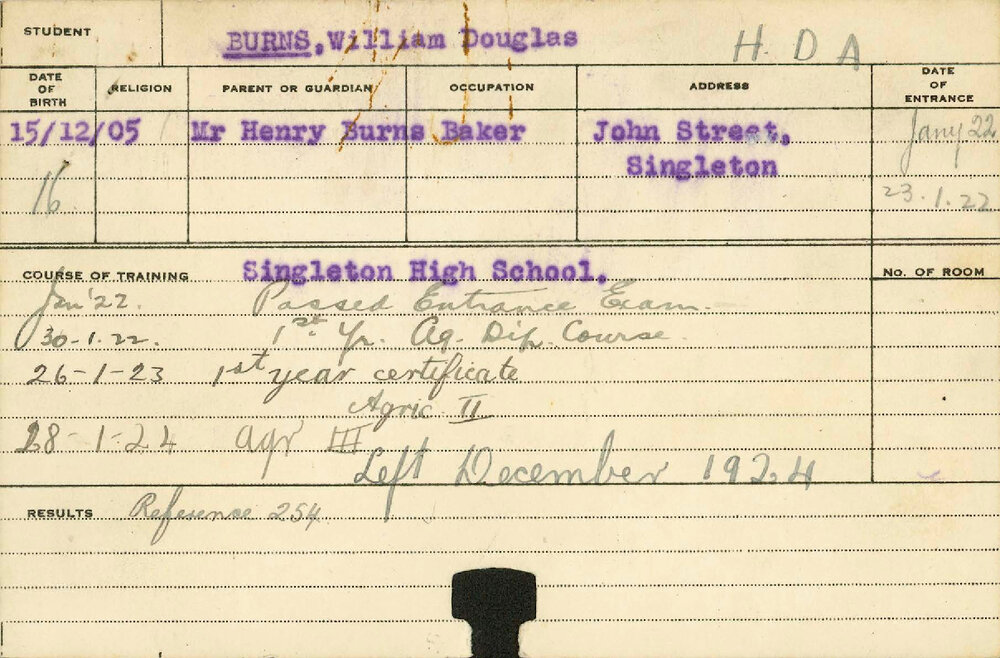 STUDENT BURNS, William Douglas H. D A
DATE OF BIRTH RELIGION PARENT OR GUARDIAN OCCUPATION ADDRESS DATE OF ENTRANCE
15/12/05 Mr Henry Burns Baker John Street, Jany 22
Singleton
16 23.1.22
COURSE OF TRAINING Singleton High School. No. OF ROOM
Jan '22. Passed Entrance Exam.
30-1.22. 1st. Yr. Ag. Dip. Course.
26-1-23 1st year certificate
Agric II
28-1-24 Agr III
Left December 1924
RESULTS Reference 254